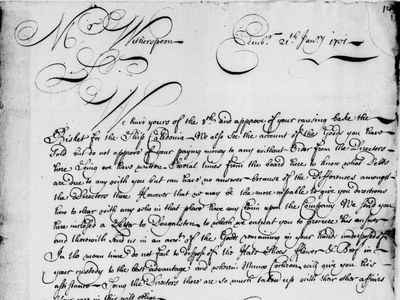 Mr Witherspoon
Edinbr 21th Janry 1701
Sr
We have yours of the 8th and approve of your causing bake the
Bisket for the Ship Caledonia. We also see the account of the Goods you have
sold but do not approve of your paying money to any without Order from the Directors
here. Since we have written several times from the board here to know what Debts
are due to any with you but can have no answer because of the Differences amongst
the Directors there However that we may be the more capable to give you directions
how to clear with any who in that place have any upon the Company We send you
here inclosed a Letter to to which we intreat you to procure his answer
and therewith send us in an acct of the Goods remaining in your hands undisposed of
In the mean time do not fail to dispose of the & Beef in
your custody to the best advantage and wherein Munro will give you his
assistance Since the Directors there are so much taken up with their other affairs